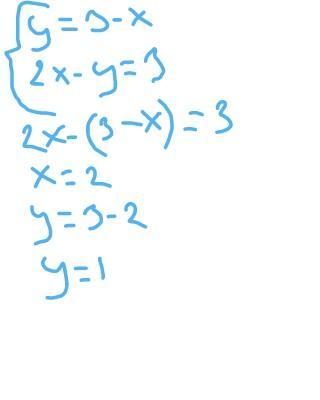 { y = 3 - x
2x - y = 3
2x - (3 - x) = 3
x = 2
y = 3 - 2
y = 1